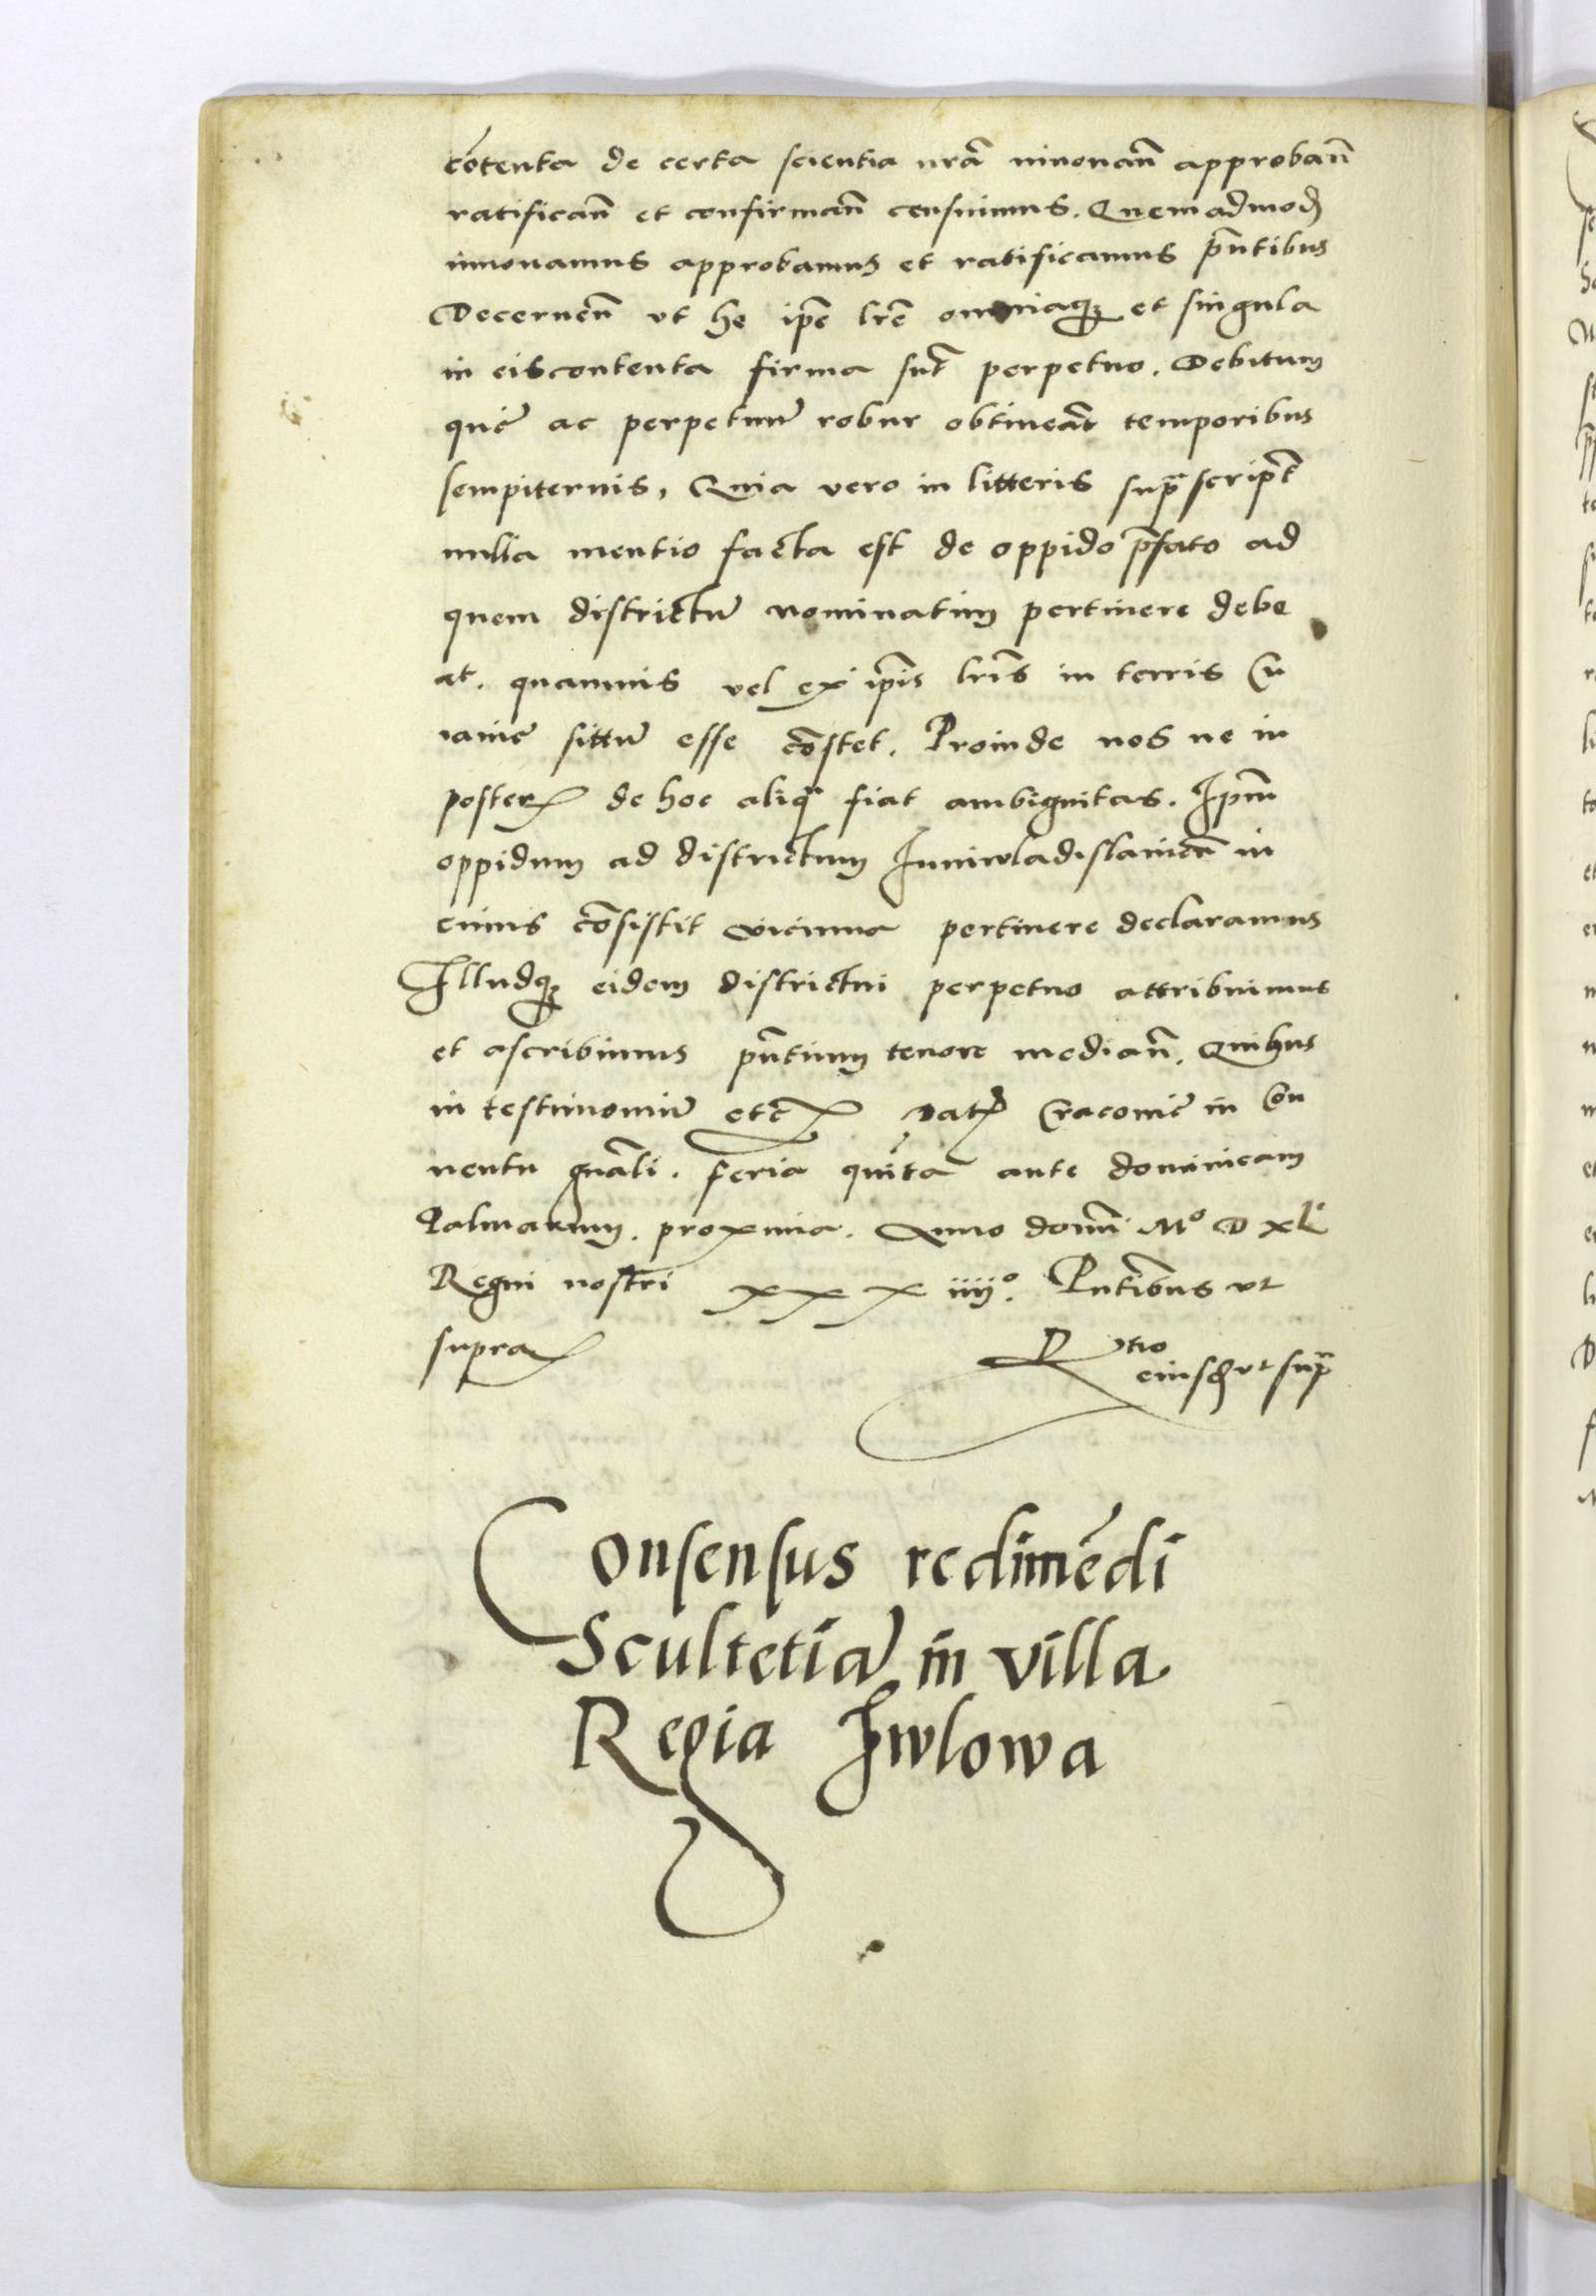 cōtenta de certa scientia nrā innouan̄ approban̄
ratifican̄ et confirman̄ censuimus. Quemadmod
innouamus approbamus et ratificamus pn̄tibus
Decernen̄ vt he ipē lrē omniaq et singula
in eis contenta firma sūt perpetuo. Debitum
quē ac perpetuū robur obtineāt temporibus
sempiternis, Quia vero in litteris supra script
nulla mentio facta est de oppido p̄fato ad
quem districtū nominatim pertinere debe
at. quamuis vel ex ip̄is lrīs in terris Cu
iauie sittū esse cōstet. Proinde nos ne in
poster de hoc aliqa fiat ambiguitas. Ipm̄
oppidum ad districtum Iuniwladislauien̄ in
cuius cōsistit vicinia pertinere declaramus
Illudq eidem districtui perpetuo attribuimus
et ascribimus pn̄tium tenore median̄. Quibus
in testimoniū etc Dat Cracouie in Con
uentu gn̄ali. feria quīta ante dominicam
Palmarum. proxima. Anno domī Mº D xlº
Regni nostri xxx iiijº. Pn̄tibus vt
supra
Rtio
eiusd vt supra
Consensus redimēdi
Scultetiā in villa
Regia Iwlowa